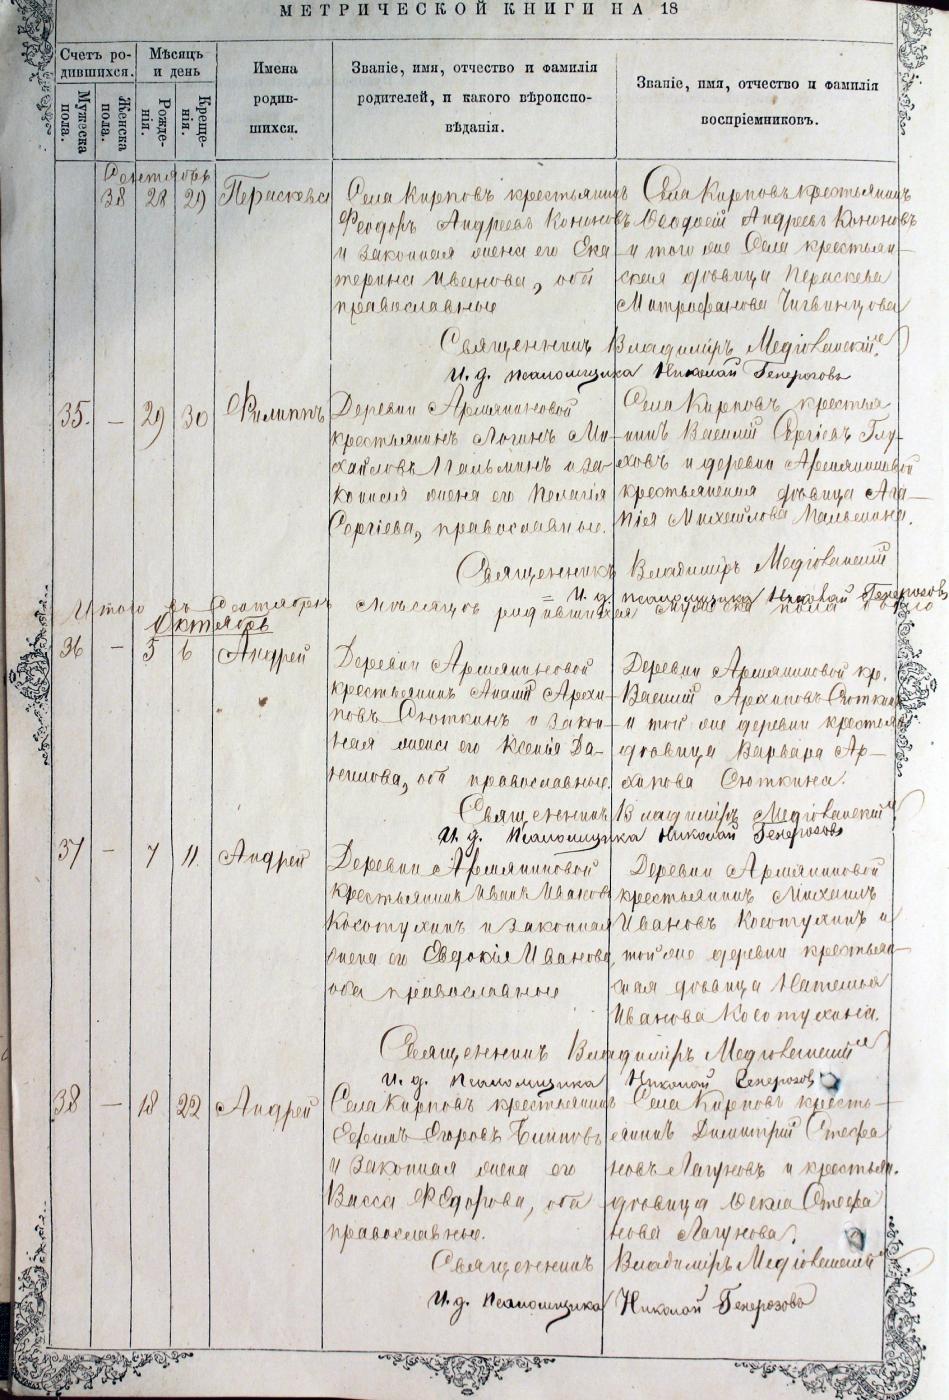 МЕТРИЧЕСКОЙ КНИГИ НА 18
Счетъ ро-
дившихся.
Мужеска
пола.
Женска
пола.
Мѣсяцъ
и день
Рожде-
нія.
Креще-
нія.
Имена
родив-
шихся.
Званіе, имя, отчество и фамилія
родителей, и какого вѣроиспо-
вѣданія.
Званіе, имя, отчество и фамилія
воспріемниковъ.
Сентябрь
38 28 29 Параскева
Села Кирповъ крестьянинъ
Феодоръ Андреевъ Кононовъ
и законная жена его Ека-
терина Иванова, оба
православные
Села Кирповъ крестьянинъ
Ѳеодосій Андреевъ Кононовъ
и того же Села крестьян-
ская дѣвица Параскева
Митрофанова Чигвинцова
Священникъ Владиміръ Медіоланскій
И. д. псаломщика Николай Генерозовъ
35. — 29 30 Филиппъ
Деревни Армяниновой
крестьянинъ Логинъ Ми-
хайловъ Мальминъ и за-
конная жена его Пелагія
Сергіева, православные.
Села Кирповъ крестья
нинъ Василій Сергіевъ Глу-
ховъ и деревни Армяниновой
крестьянская дѣвица Ага-
пія Михайлова Мальмина.
Священникъ Владиміръ Медіоланскій
И. д. псаломщика Николай Генерозовъ
Итого въ Сентябрѣ мѣсяцѣ родившихся мужеска пола было
Октябрь
36 — 5 6 Андрей
Деревни Армяниновой
крестьянинъ Ананій Архи-
повъ Сюткинъ и закон-
ная жена его Ксенія Да-
нилова, оба православные.
Деревни Армяниновой кр.
Василій Архиповъ Сюткинъ
и той же деревни крестьян
дѣвица Варвара Ар-
хипова Сюткина.
Священникъ Владиміръ Медіоланскій
И. д. Псаломщика Николай Генерозовъ
37 — 7 11. Андрей
Деревни Армяниновой
крестьянинъ Иванъ Ивановъ
Косотухинъ и законная
жена его Евдокія Иванова,
оба православные
Деревни Армяниновой
крестьянинъ Михаилъ
Ивановъ Косотухинъ и
той же деревни крестьян-
ская дѣвица Наталья
Иванова Косотухина.
Священникъ Владиміръ Медіоланскій
И. д. Псаломщика Николай Генерозовъ
38 — 18 22 Андрей
Села Кирповъ крестьянинъ
Ефимъ Егоровъ Блиновъ
и законная жена его
Васса Ѳедорова, оба
православные.
Села Кирповъ кресть-
янинъ Димитрій Стефа
новъ Лагуновъ и крестьян.
дѣвица Ѳекла Стефа
нова Лагунова.
Священникъ Владиміръ Медіоланскій
И. д. Псаломщика Николай Генерозовъ